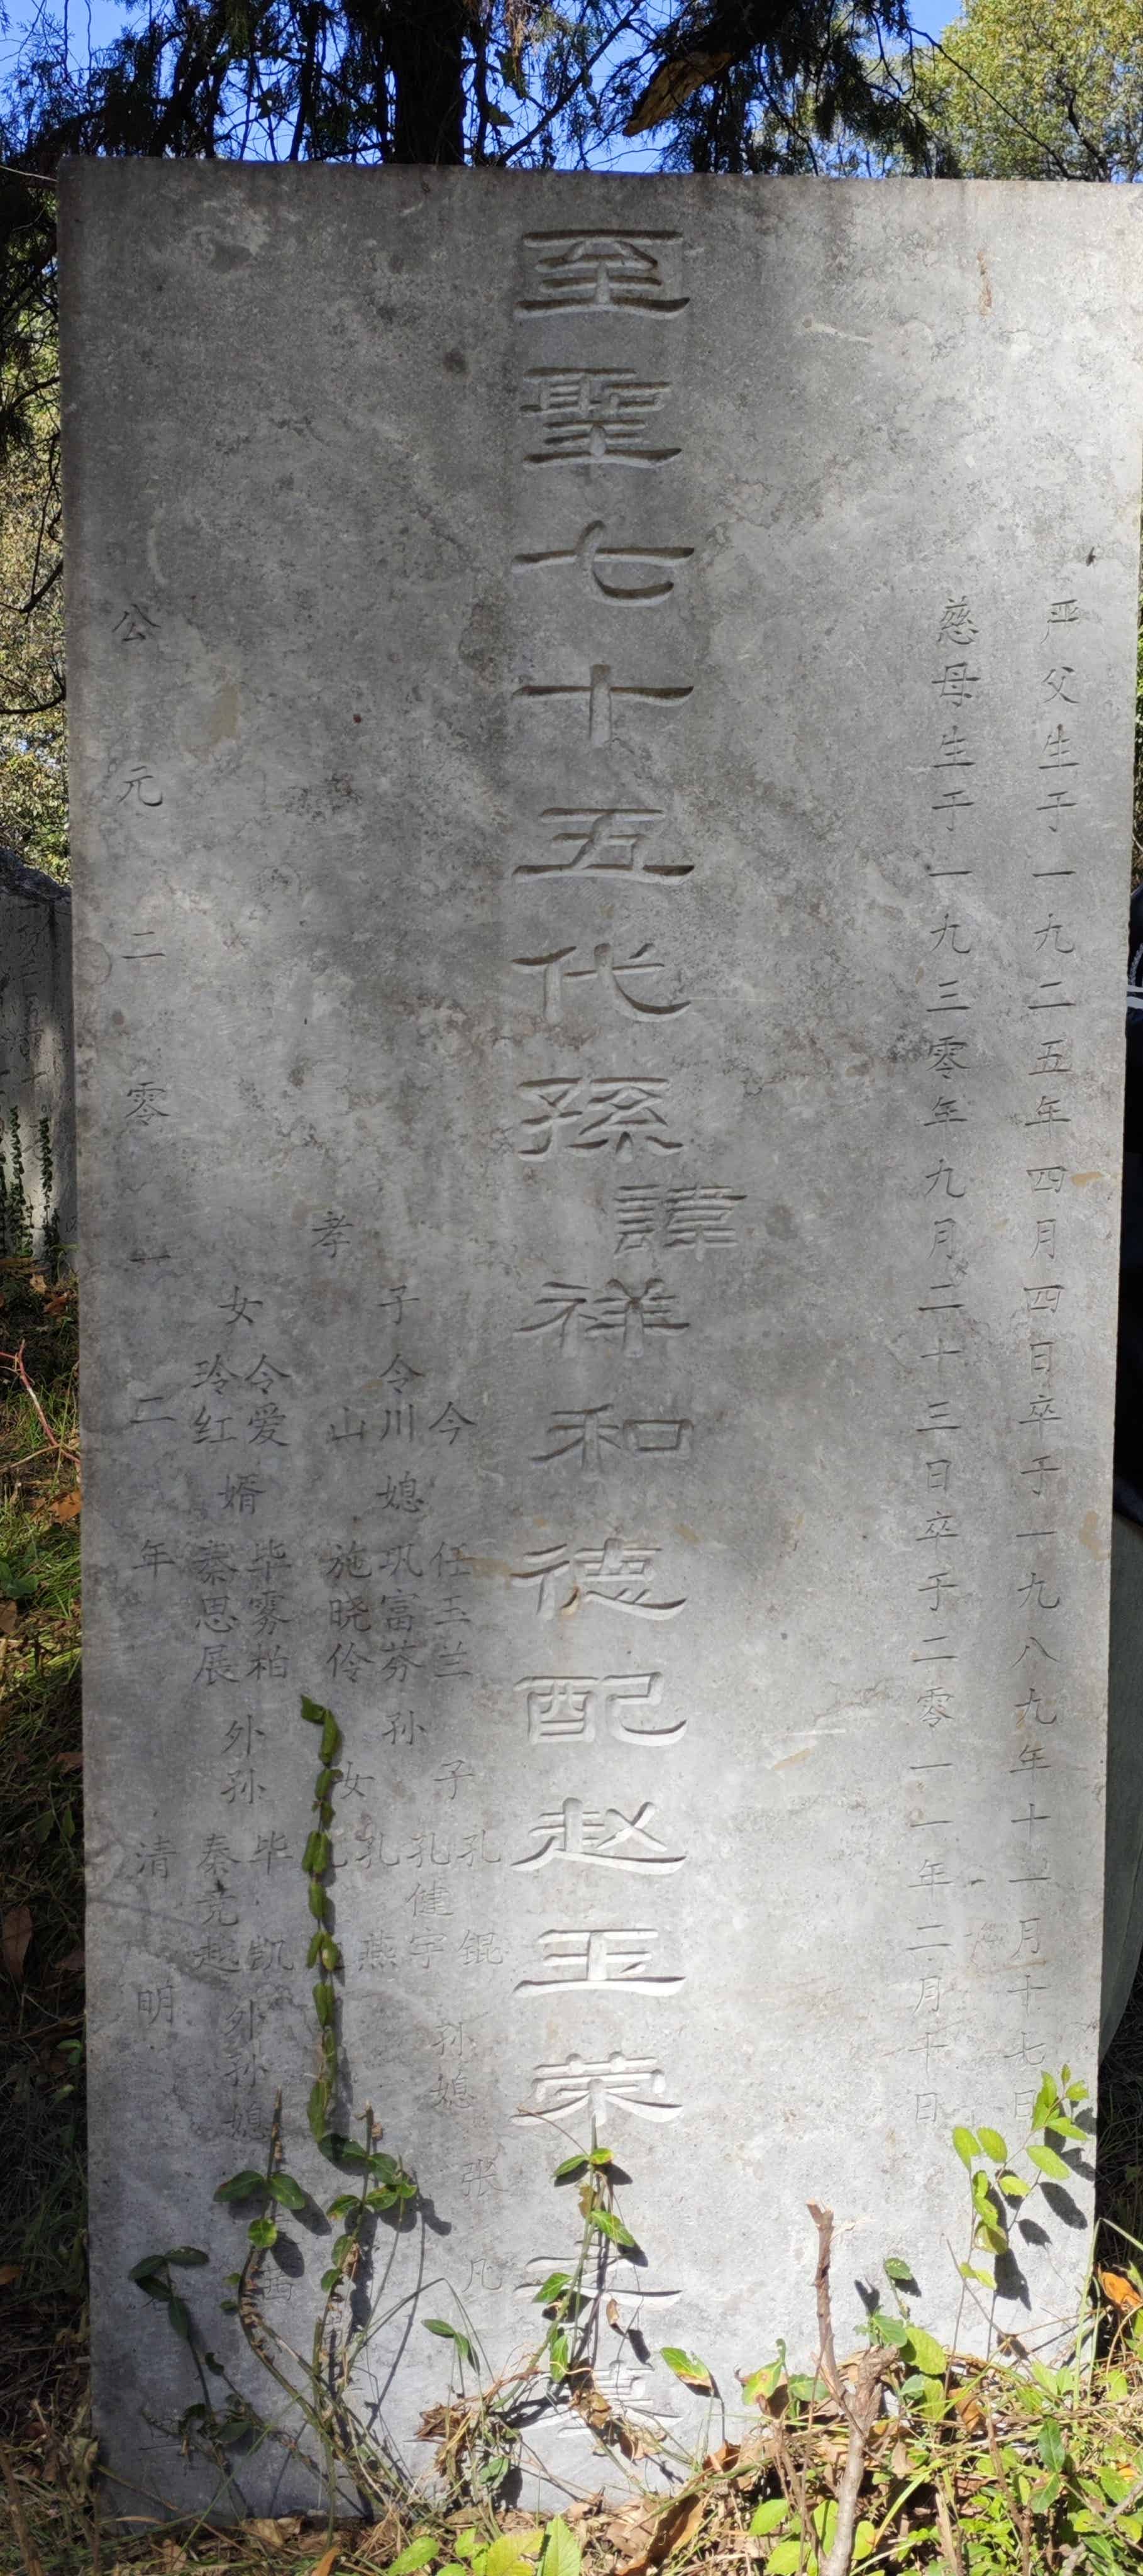 严父生于一九二五年四月四日卒于一九八九年十一月十七日
慈母生于一九三零年九月二十三日卒于二零一一年二月十日
至聖七十五代孫諱祥和德配赵玉荣之墓
孝
子
令
令川
山
媳
任玉兰
巩富芬
施晓伶
孙
子
孔锟
孔健宇
孙媳
张凡
女
孔燕
女
令爱
玲红
婿
毕雾柏
秦思展
外孙
毕凯
秦竞赵
外孙媳
公元二零一二年清明